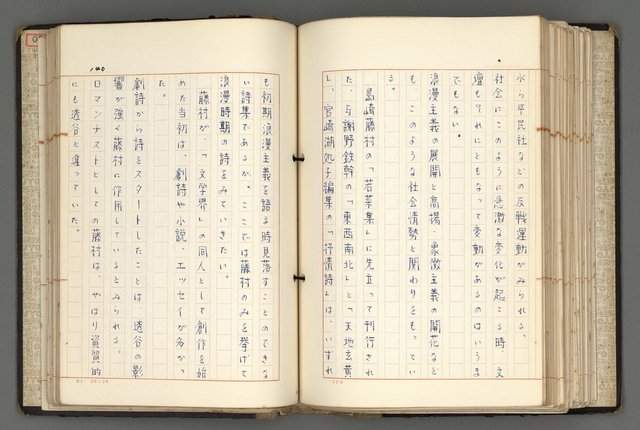 水ら平民社などの反戦運動がみられる。
社会にこのように急激な変化が起こる時、文
壇もそれにともなって変動があるのはいうま
でもない。
浪漫主義の展開と高揚、象徴主義の開花など
も、このような社会情勢と関わりをもってい
る。
島崎藤村の「若菜集」に先立って刊行され
た、与謝野鉄幹の「東西南北」と「天地玄黄
」、宮崎湖処子編集の「抒情詩」は、いずれ
も初期浪漫主義を語る時見落すことのできな
い詩集であるが、ここでは藤村のみを挙げて
浪漫時期の詩をみていきたい。
藤村が、「文学界」の同人として創作を始
めた当初は、劇詩や小説、エッセイが多かっ
た。
劇詩から詩をスタートしたことは、透谷の影
響が強く藤村に作用しているとみられる。
ロマンチストとしての藤村は、やはり資質的
にも透谷と違っていた。